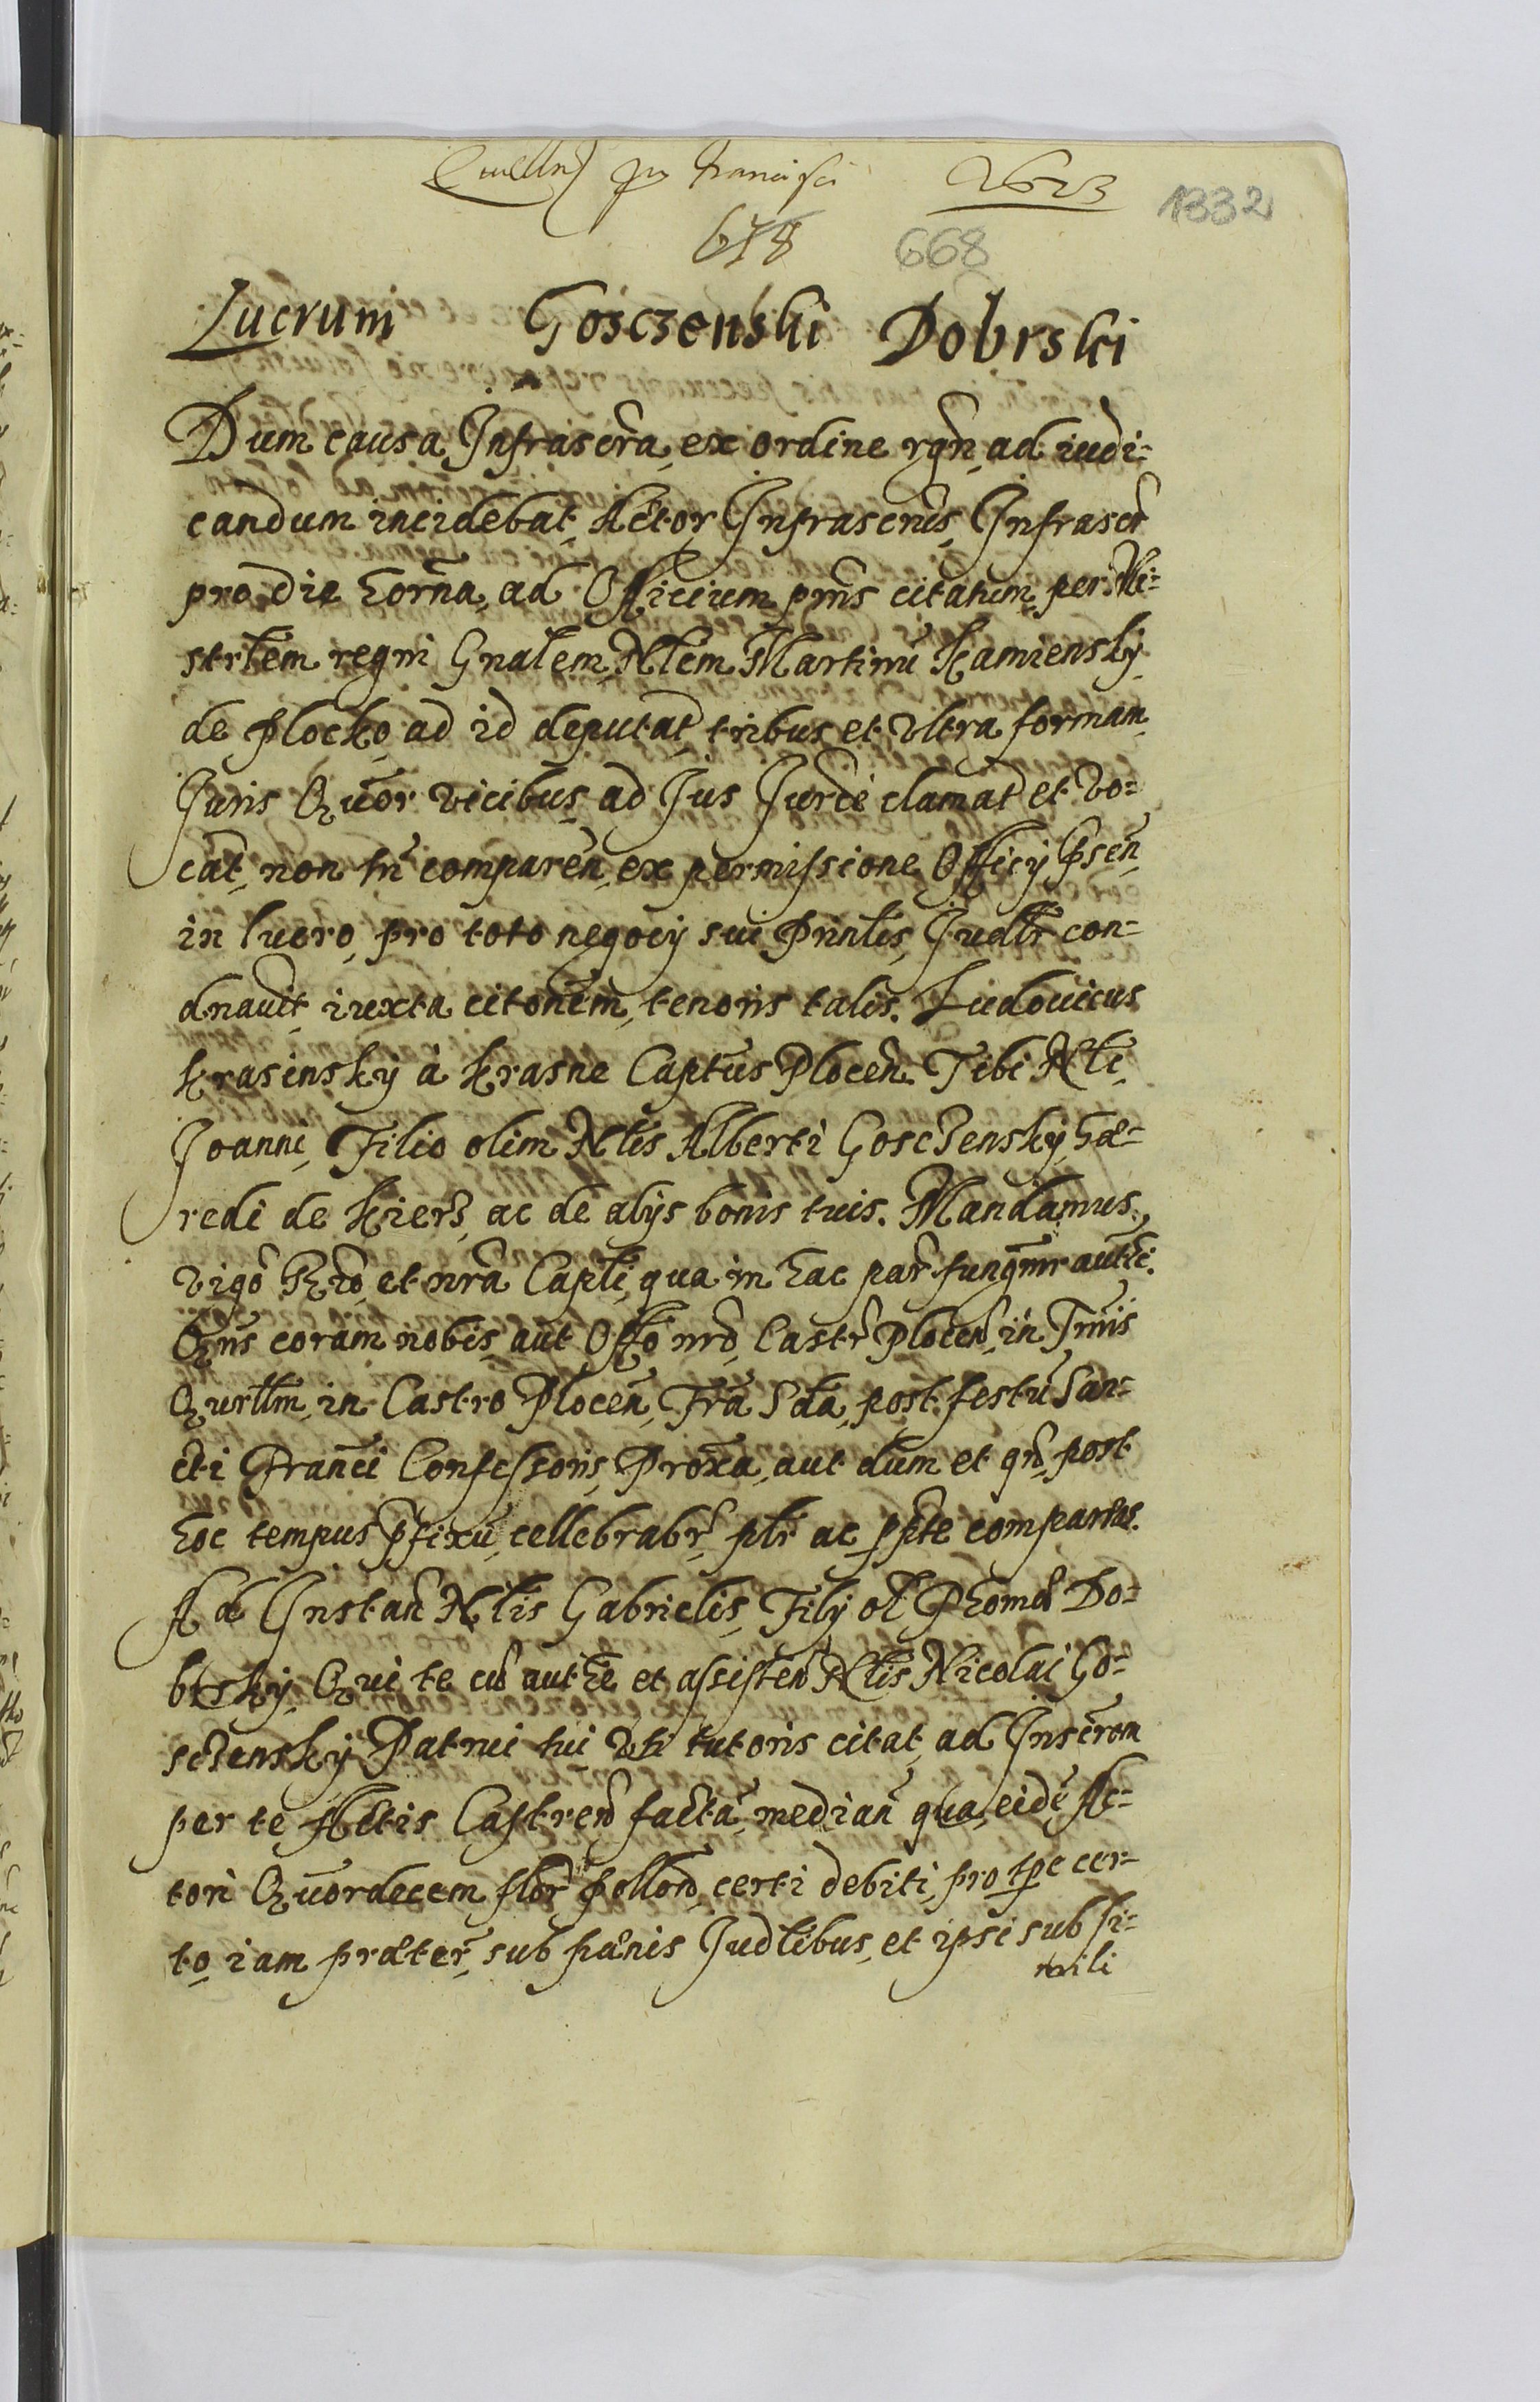 Querellar pr Francisci 1623 1332
678 668
Lucrum Gosczenski Dobrski
Dum causa Infrascra ex ordine rgri ad iudi-
candum incidebat, Actor Infrascrus Infrascr
pro die horna, ad Officium pnis citatum, per Mi-
strlem regni Gnalem Nlem Martinu Kamiensky
de Plocko ad id deputat tribus et vltra forman
Juris Quor vicibus ad Jus Jurde clamat et vo-
cat, non tn comparen, ex permissione Officy Psen
in lucro, pro toto negocy sui Prinlis, Judlr con-
dnauit iuxta citonem, tenoris talis. Ludouicus
Krasinsky à Krasne Captus Plocen. Tibi Nli
Joanni, Filio olim Nlis Alberti Gosczensky, Hæ-
redi de Kierz, ac de alys bonis tuis. Mandamus
vigo et nra Captli, qua in hac par fungmr authe.
Qtns coram nobis, aut Offo nro, Castr Plocen, in Tmis
Qurllm, in Castro Plocen, Fra Sda, post festu San-
cti Franci Confessoris, Proxa, aut dum et qn, post
hoc tempus pfixu, cellebrabr, plr ac ppte comparas.
Ad Instan Nlis Gabrielis, Fily ol Thomæ Do-
brsky, Qui te cu authe et assisten Nlis Nicolai Go-
sczensky Patrui tui vti tutoris citat, ad Inscrom
per te Actis Castren factã, medianˉ qua, eidẽ Ac-
tori Quordecem flor Pollon, certi debiti, pro tpe cer-
to iam præter, sub pænis Judlibus, et ipsi sub si-
mili